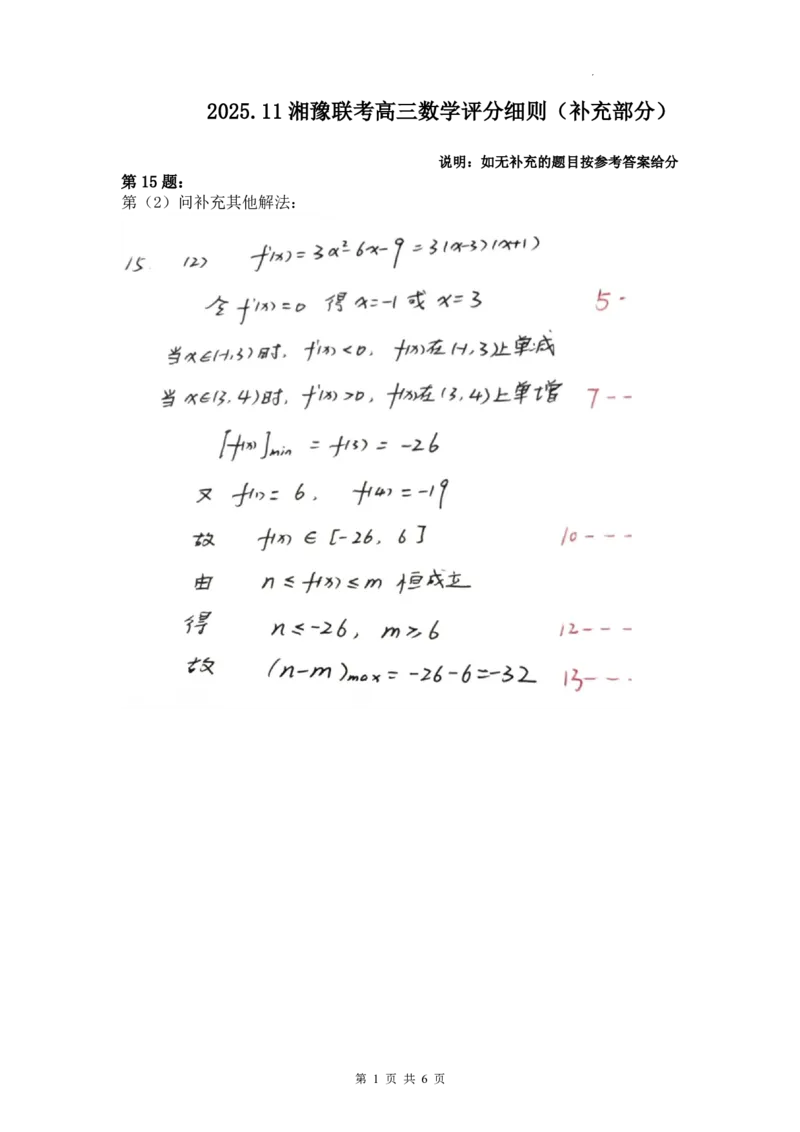 2025.11 湘豫联考高三数学评分细则（补充部分）
说明：如无补充的题目按参考答案给分
第 15 题：
第（2）问补充其他解法：
15. (2) f'(x)=3x²-6x-9=3(x-3)(x+1)
令 f'(x)=0 得 x=-1 或 x=3 5-
当x∈(-1,3)时, f'(x)<0, f(x)在(-1,3)上单减
当 x∈(3,4)时, f'(x)>0, f(x)在(3,4)上单增 7--
[f(x)]min = f(3) = -26
又 f(-1)= 6, f(4)=-19
故 f(x) ∈ [-26, 6] 10---
由 n≤f(x)≤m 恒成立
得 n≤-26, m≥6 12---
故 (n-m)max=-26-6=-32 13---
第 1 页 共 6 页